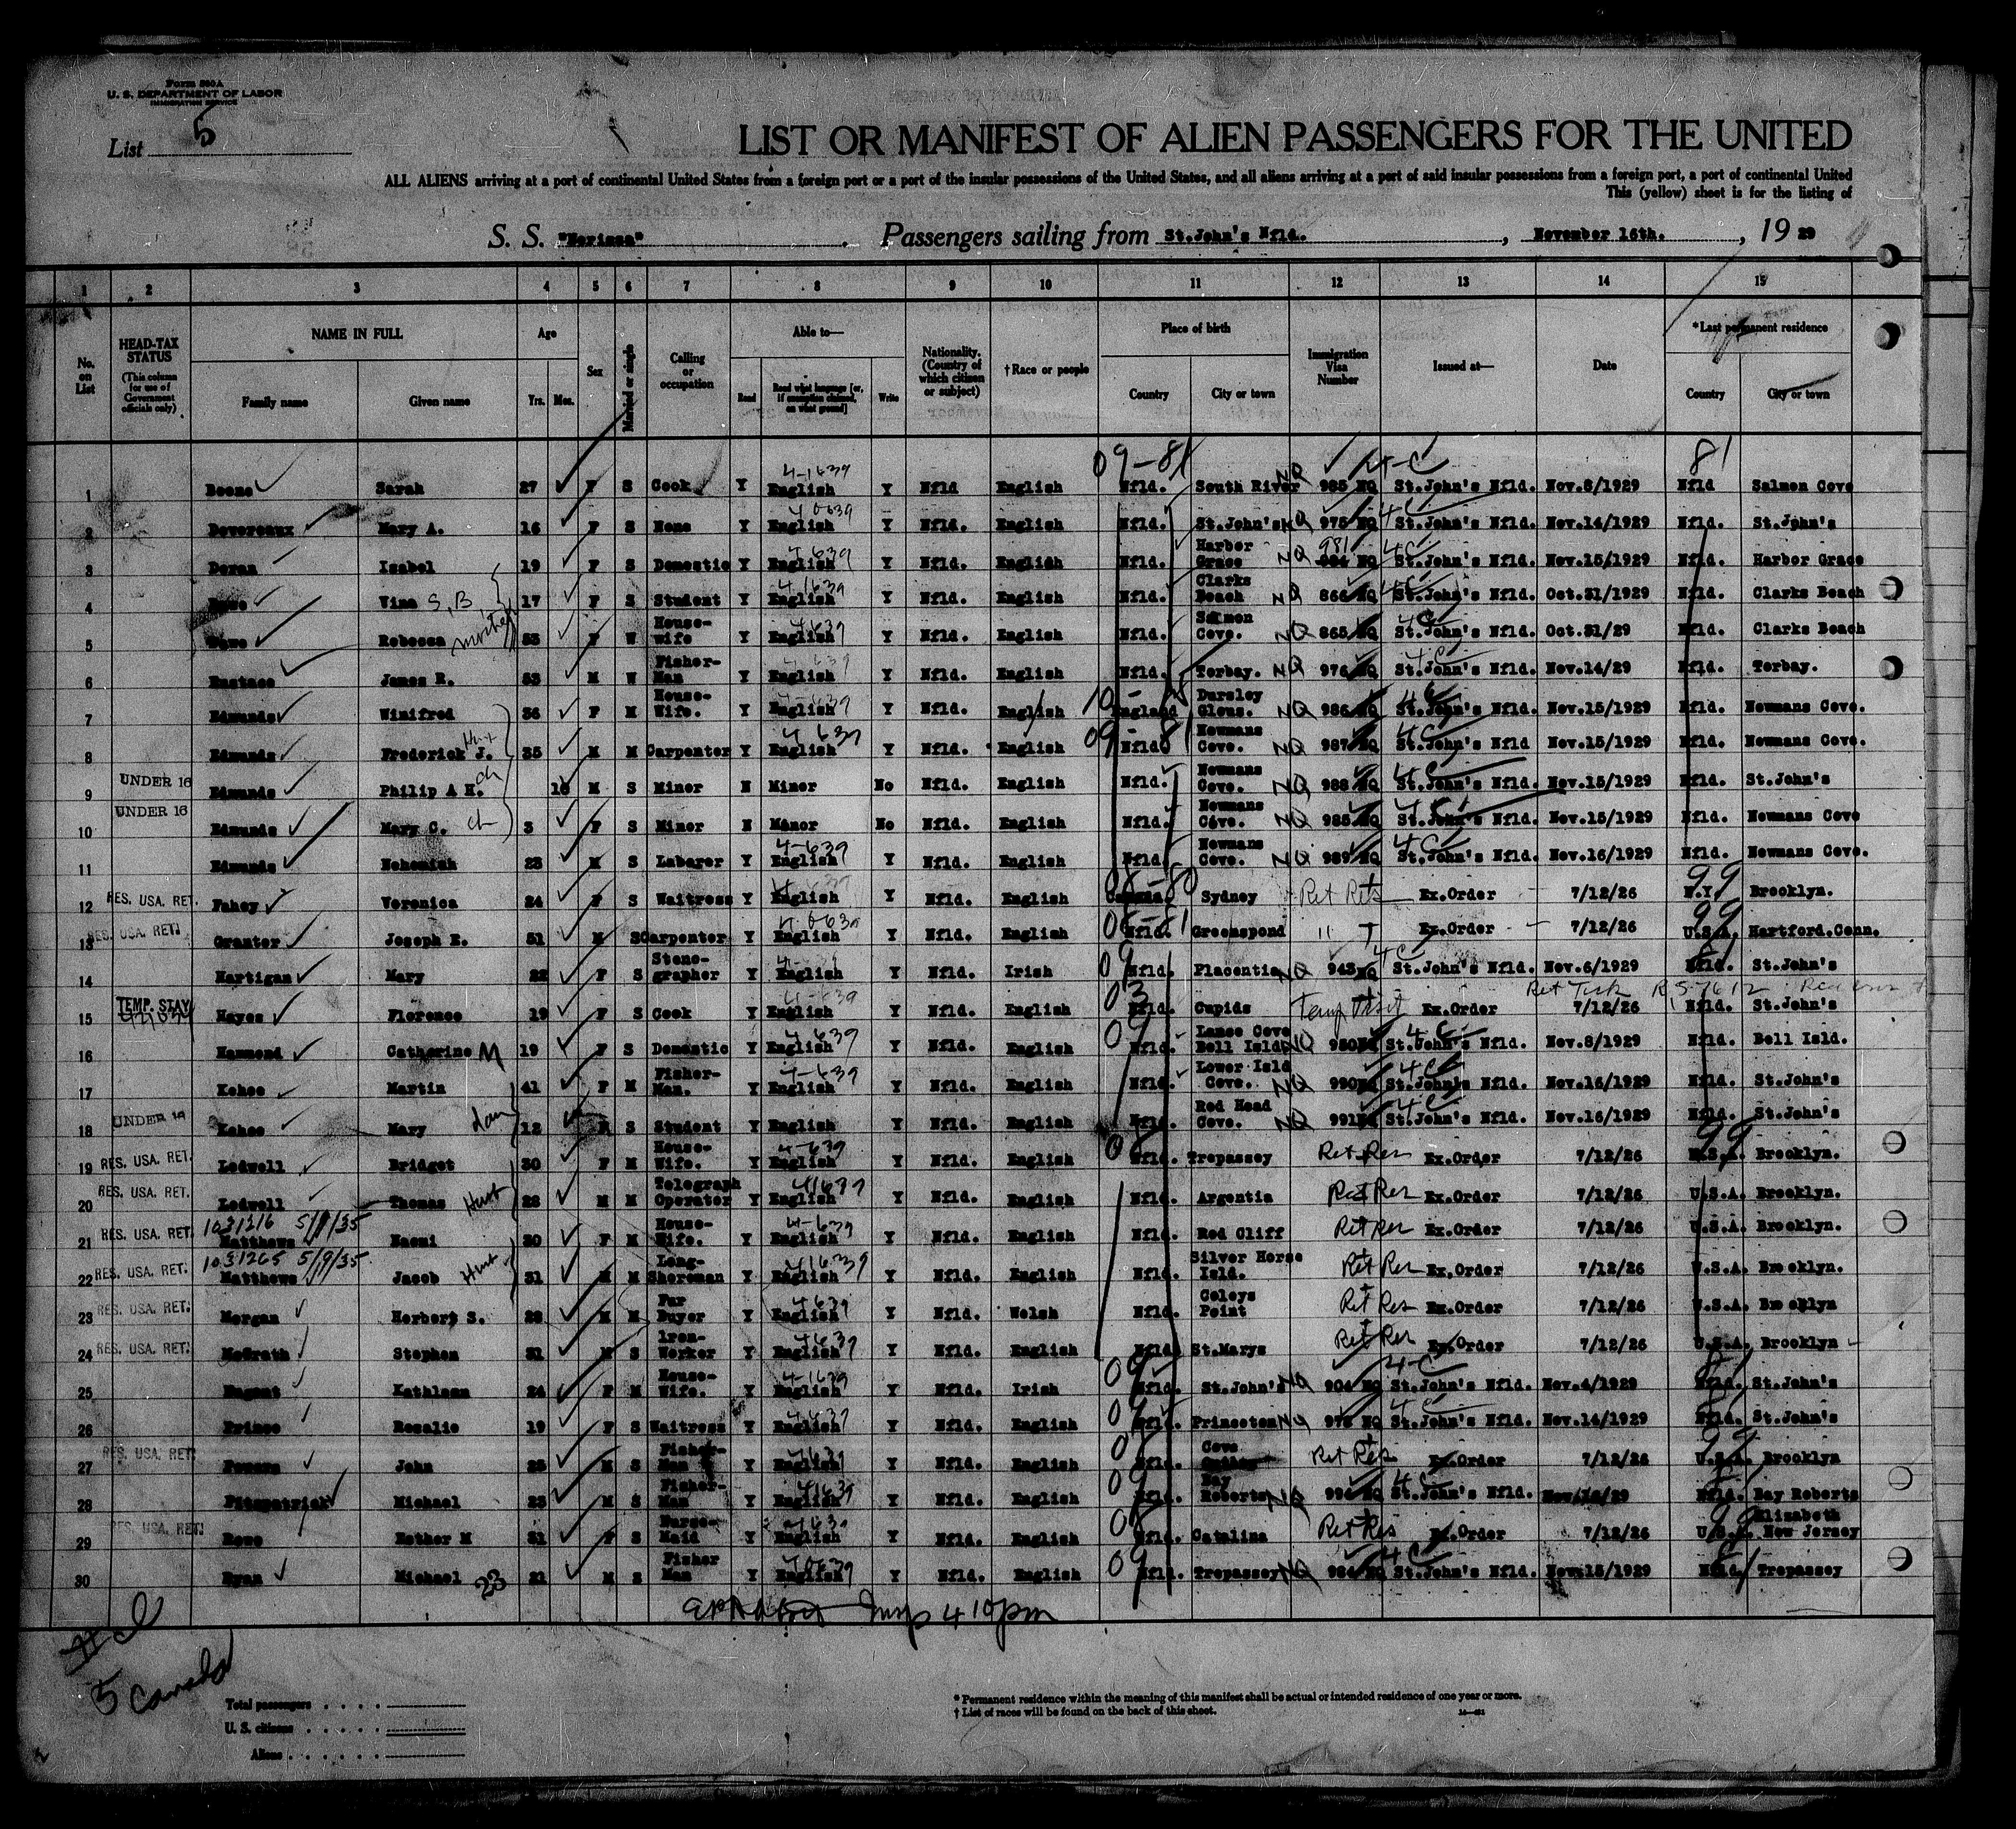 Form 500 A
U. S. DEPARTMENT OF LABOR
IMMIGRATION SERVICE
List 5
LIST OR MANIFEST OF ALIEN PASSENGERS FOR THE UNITED
ALL ALIENS arriving at a port of continental United States from a foreign port or a port of the insular possessions of the United States, and all aliens arriving at a port of said insular possessions from a foreign port, a port of continental United
This (yellow) sheet is for the listing of
S. S. "Nerissa" Passengers sailing from St.John's Nfld. , November 16th. , 19 29
1 2 3 4 5 6 7 8 9 10 11 12 13 14 15
No. on List HEAD-TAX STATUS (This column for use of Government officials only) NAME IN FULL Family name Given name Age Yrs. Mos. Sex Married or single Calling or occupation Able to— Read Read what language [or, if exemption claimed, on what ground] Write Nationality. (Country of which citizen or subject) †Race or people Place of birth Country City or town Immigration Visa Number Issued at— Date *Last permanent residence Country City or town
09-81 4-C 81
1 Boone Sarah 27 F S Cook Y English Y Nfld English Nfld. South River NQ 985 NQ St.John's Nfld. Nov.8/1929 Nfld Salmon Cove
2 Devereaux Mary A. 16 F S None Y English Y Nfld. English Nfld. St.John's NQ 975 NQ St.John's Nfld. Nov.14/1929 Nfld. St.John's
3 Doran Isabel 19 F S Domestic Y English Y Nfld. English Nfld. Harbor Grace NQ 981 St.John's Nfld. Nov.15/1929 Nfld. Harbor Grace
4 Vina S,B 17 F S Student Y English Y Nfld. English Nfld. Clarks Beach NQ 866 NQ St.John's Nfld. Oct.31/1929 Nfld. Clarks Beach
5 Rebecca mother 53 F W House-wife Y English Y Nfld. English Nfld. Salmon Cove. NQ 865 NQ St.John's Nfld. Oct.31/29 Nfld. Clarks Beach
6 Eustace James R. 53 M W Fisher-Man Y English Y Nfld. English Nfld. Torbay. NQ 976 NQ St.John's Nfld. Nov.14/29 Nfld. Torbay.
7 Edmunds Winifred 36 F M House-Wife. Y English Y Nfld. English England Dursley Glous. NQ 986 NQ St.John's Nfld. Nov.15/1929 Nfld. Newmans Cove.
8 Edmunds Frederick J. Hus 35 M M Carpenter Y English Y Nfld. English Nfld. Newmans Cove. NQ 987 NQ St.John's Nfld Nov.15/1929 Nfld. Newmans Cove.
9 UNDER 16 Edmunds Philip A H. ch 10 M S Minor N Minor No Nfld. English Nfld. Newmans Cove. NQ 988 NQ St.John's Nfld. Nov.15/1929 Nfld. St.John's
10 UNDER 16 Edmunds Mary C. ch 3 F S Minor N Minor No Nfld. English Nfld. Newmans Cove. NQ 985 NQ St.John's Nfld. Nov.15/1929 Nfld. Newmans Cove
11 Edmunds Nehemiah 23 M S Laborer Y English Y Nfld. English Nfld. Newmans Cove. NQ 989 NQ St.John's Nfld. Nov.16/1929 Nfld. Newmans Cove.
12 RES. USA. RET. Fahey Veronica 24 F S Waitress Y English Y Nfld. English Canada Sydney Ret Res Ex.Order 7/12/26 N.Y. Brooklyn.
13 RES. USA. RET. Granter Joseph E. 51 M S Carpenter Y English Y Nfld. English Nfld. Greenspond " Ex.Order 7/12/26 U.S.A. Hartford.Conn.
14 Hartigan Mary 22 F S Steno-grapher Y English Y Nfld. Irish Nfld. Placentia NQ 943 NQ St.John's Nfld. Nov.6/1929 Nfld. St.John's
15 TEMP. STAY Hayes Florence 19 F S Cook Y English Y Nfld. English Nfld. Cupids Temp Visit Ex.Order 7/12/26 Nfld. St.John's
16 Hammond Catherine M 19 F S Domestic Y English Y Nfld. English Nfld. Lance Cove Bell Isld. NQ 950 St.John's Nfld. Nov.8/1929 Nfld. Bell Isld.
17 Kehoe Martin 41 F M Fisher-Man. Y English Y Nfld. English Nfld. Lower Isld Cove. NQ 990 St.John's Nfld. Nov.16/1929 Nfld. St.John's
18 UNDER 16 Kehoe Mary dau 12 S Student Y English Y Nfld. English Nfld. Red Head Cove. NQ 991 St.John's Nfld. Nov.16/1929 Nfld. St.John's
19 RES. USA. RET. Ledwell Bridget 30 F M House-Wife. Y English Y Nfld. English Nfld. Trepassey Ret Res Ex.Order 7/12/26 U.S.A. Brooklyn.
20 RES. USA. RET. Ledwell Thomas Husb 28 M M Telegraph Operator Y English Y Nfld. English Nfld. Argentia Ret Res Ex.Order 7/12/26 U.S.A. Brooklyn.
21 RES. USA. RET. 1031216 5/9/35 Matthews Naomi 30 F M House-Wife. Y English Y Nfld. English Nfld. Red Cliff Ret Res Ex.Order 7/12/26 U.S.A. Brooklyn.
22 RES. USA. RET. 1031265 5/9/35. Matthews Jacob Husb 31 M M Long-Shoreman Y English Y Nfld. English Nfld. Silver Horse Isld. Ret Res Ex.Order 7/12/26 U.S.A. Brooklyn.
23 RES. USA. RET. Morgan Herbert S. 29 M M Fur Buyer Y English Y Nfld. Welsh Nfld. Coleys Point Ret Res Ex.Order 7/12/26 U.S.A. Brooklyn
24 RES. USA. RET. McGrath Stephen 31 M S Iron-Worker Y English Y Nfld. English Nfld. St.Marys Ret Res Ex.Order 7/12/26 U.S.A. Brooklyn
25 Nugent Kathleen 24 F M House-Wife. Y English Y Nfld. Irish Nfld. St.John's NQ 904 NQ St.John's Nfld. Nov.4/1929 Nfld. St.John's
26 Prince Rosalie 19 F S Waitress Y English Y Nfld. English Nfld. Princeton NQ 972 NQ St.John's Nfld. Nov.14/1929 Nfld. St.John's
27 RES. USA. RET. Powers John 25 M S Fisher-Man Y English Y Nfld. English Nfld. Cove Ret Res Ex.Order 7/12/26 U.S.A. Brooklyn
28 Fitzpatrick Michael 23 M S Fisher-Man Y English Y Nfld. English Nfld. Bay Roberts NQ 994 NQ St.John's Nfld. Nfld. Bay Roberts
29 RES. USA. RET. Rowe Esther M 31 F S Nurse-Maid Y English Y Nfld. English Nfld. Catalina Ret Res Ex.Order 7/12/26 U.S.A. Elizabeth New Jersey
30 Ryan Michael 23 21 M S Fisher Man Y English Y Nfld. English Nfld. Trepassey NQ 984 NQ St.John's Nfld. Nov.15/1929 Nfld. Trepassey
4 10 pm
5 Canada
Total passengers
U. S. citizens
Aliens
* Permanent residence within the meaning of this manifest shall be actual or intended residence of one year or more.
† List of races will be found on the back of this sheet.